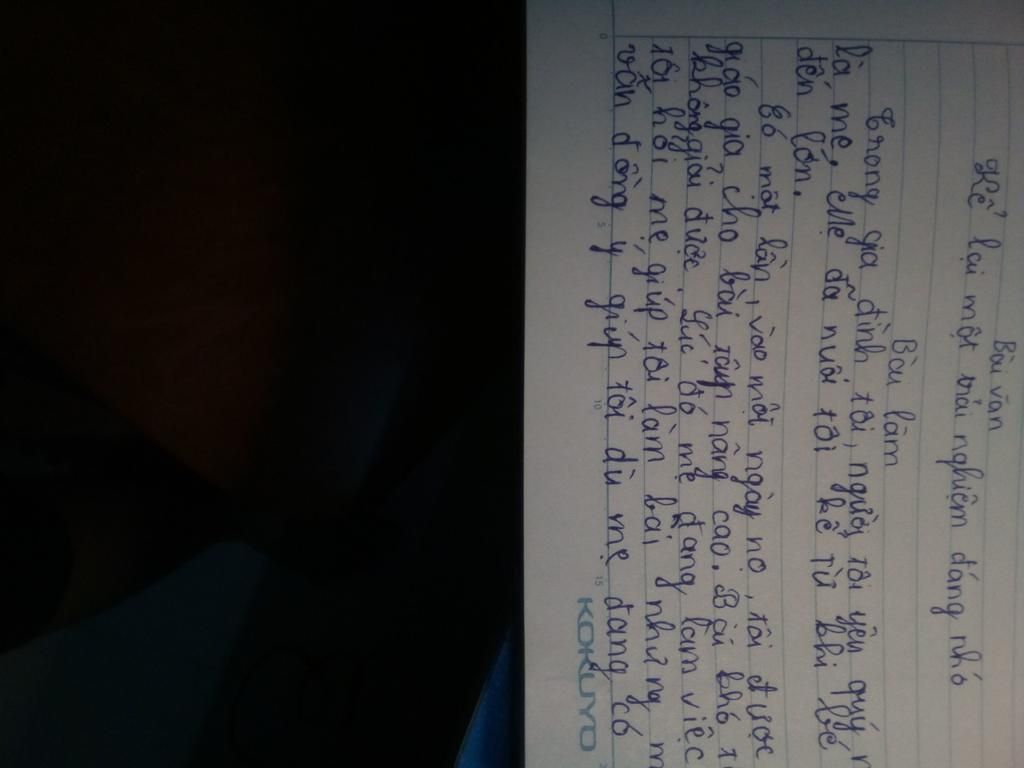 Bài văn
Kể lại một trải nghiệm đáng nhớ
Bài làm
Trong gia đình tôi, người tôi yêu quý
là mẹ. Mẹ đã nuôi tôi kể từ khi bé
đến lớn.
Có một lần, vào một ngày nọ, tôi được
giáo gia cho bài tập nâng cao. Bài khó
không giải được. Lúc đó mẹ đang làm việc
tôi hỏi mẹ giúp tôi làm bài nhưng
vẫn đồng ý giúp tôi dù mẹ đang có
0 5 10 15
KOKUYO